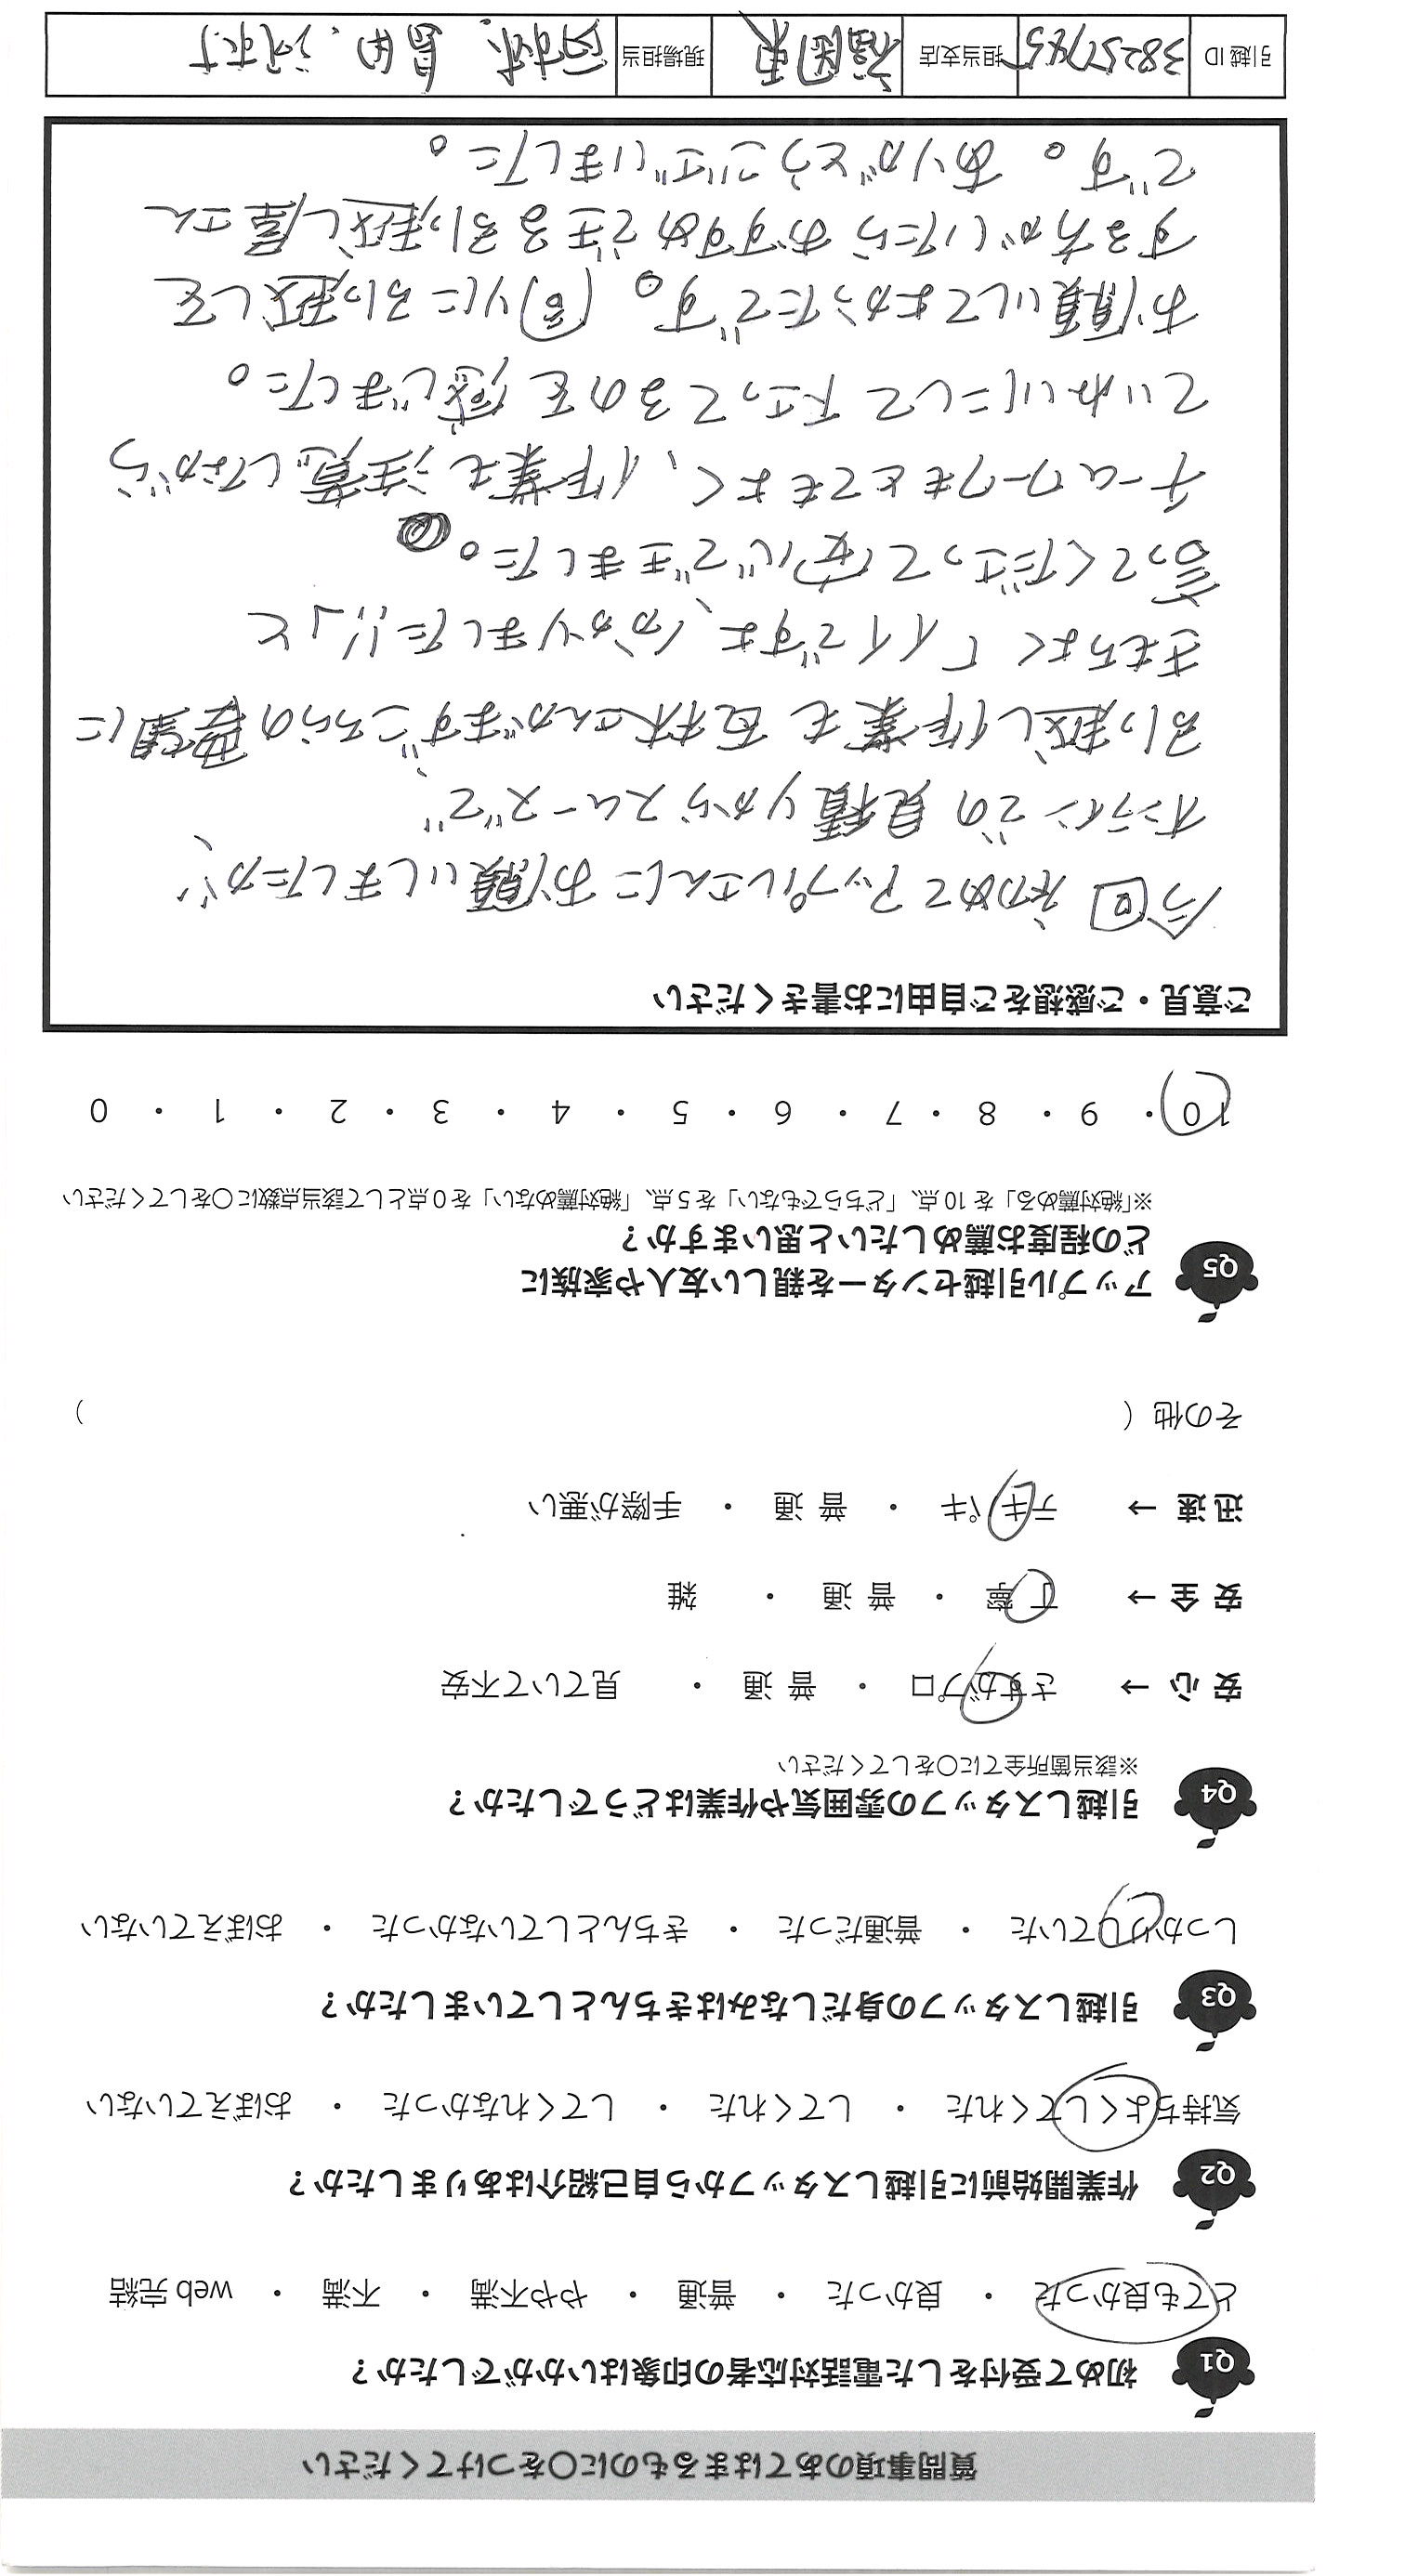 質問事項のあてはまるものに○をつけてください
Q1 初めて受付をした電話対応者の印象はいかがでしたか?
とても良かった ・ 良かった ・ 普通 ・ やや不満 ・ 不満 ・ web 完結
Q2 作業開始前に引越しスタッフから自己紹介はありましたか?
気持ちよくしてくれた ・ してくれた ・ してくれなかった ・ おぼえていない
Q3 引越しスタッフの身だしなみはきちんとしていましたか?
しっかりしていた ・ 普通だった ・ きちんとしていなかった ・ おぼえていない
Q4 引越しスタッフの雰囲気や作業はどうでしたか?
※該当箇所全てに○をしてください
安心 → さすがプロ ・ 普通 ・ 見ていて不安
安全 → 丁寧 ・ 普通 ・ 雑
迅速 → テキパキ ・ 普通 ・ 手際が悪い
その他 ( )
Q5 アップル引越センターを親しい友人や家族に
どの程度お薦めしたいと思いますか?
※「絶対薦める」を 10 点、「どちらでもない」を 5 点、「絶対薦めない」を 0 点として該当点数に○をしてください
10 ・ 9 ・ 8 ・ 7 ・ 6 ・ 5 ・ 4 ・ 3 ・ 2 ・ 1 ・ 0
ご意見・ご感想をご自由にお書きください
今回初めてアップルさんにお願いしましたが、
オンラインでの見積りからスムーズで
引っ越し作業も西林さんがまずこちらの要望に
きもちよく「イイですよ、分かりました!!」と
言ってくださって安心できました。
チームワークもとてもよく、作業も注意しながら
ていねいにして下さってるのを感じました。
お願いしてよかったです。周りに引っ越しを
する方がいたらおすすめできる引っ越し屋さん
です。ありがとうございました。
引越 ID 担当支店 福岡東 現場担当 西林、